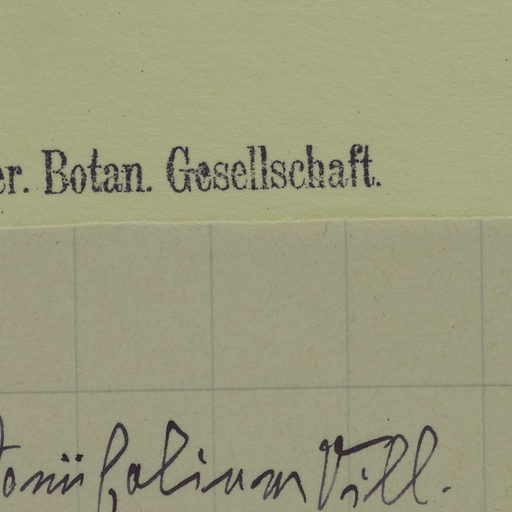 er. Botan. Gesellschaft.
folium Vill.